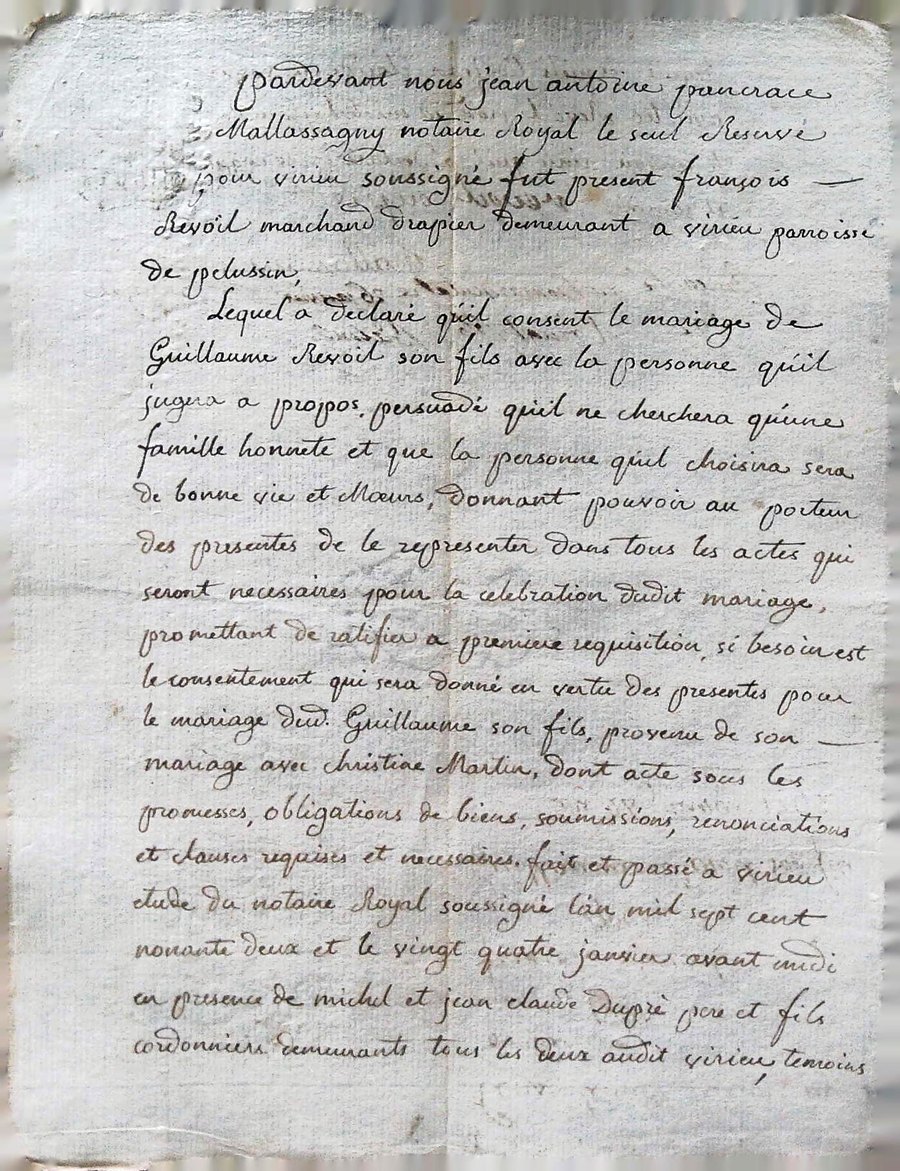 pardevant nous jean antoine pancrace
Mallassagny notaire Royal le seul Reservé
pour virieu soussigné fut present françois —
Revoil marchand drapier demeurant a virieu parroisse
de pelussin,
Lequel a declaré qu'il consent le mariage de
Guillaume Revoil son fils avec la personne qu'il
jugera a propos, persuadé qu'il ne cherchera qu'une
famille honnete et que la personne qu'il choisira sera
de bonne vie et Mœurs, donnant pouvoir au porteur
des presentes de le representer dans tous les actes qui
seront necessaires pour la celebration dudit mariage,
promettant de ratifier a premiere requisition, si besoin est
le consentement qui sera donné en vertu des presentes pour
le mariage dud. Guillaume son fils, provenu de son —
mariage avec christine Martin, dont acte sous les
promesses, obligations de biens, soumissions, renonciations
et clauses requises et necessaires. fait et passé a virieu
etude du notaire Royal soussigné l'an mil sept cent
nonante deux et le vingt quatre janvier avant midi
en presence de michel et jean claude Dupré pere et fils
cordonniers demeurants tous les deux audit virieu, temoins